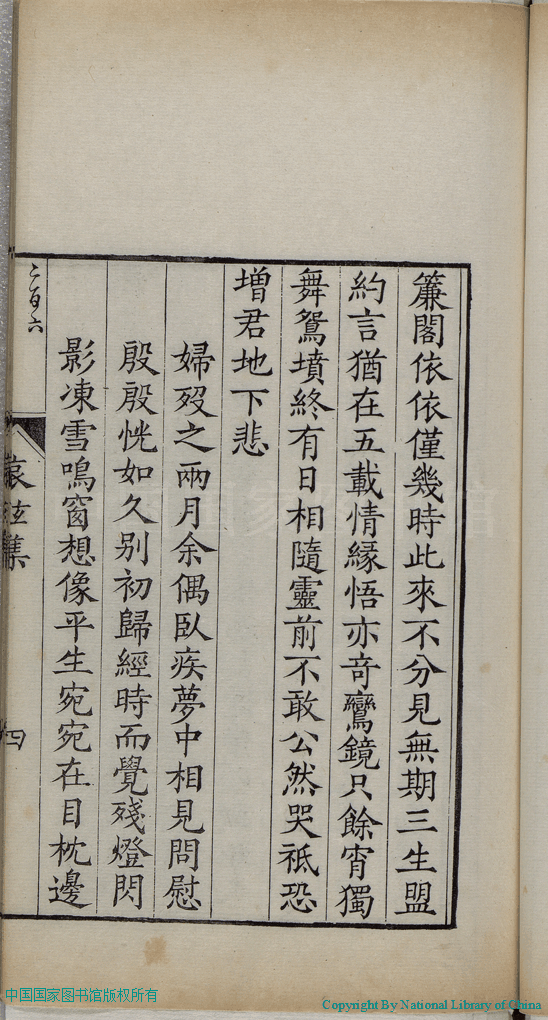 簾閣依依僅幾時此來不分見無期三生盟
約言猶在五載情緣悟亦奇鸞鏡只餘宵獨
舞鴛墳終有日相隨靈前不敢公然哭祗恐
增君地下悲
婦歿之兩月余偶臥疾夢中相見問慰
殷殷恍如久别初歸經時而覺殘燈閃
影凍雪鳴窗想像平生宛宛在目枕邊
二百六
哀弦集
四
中国国家图书馆版权所有
Copyright By National Library of China